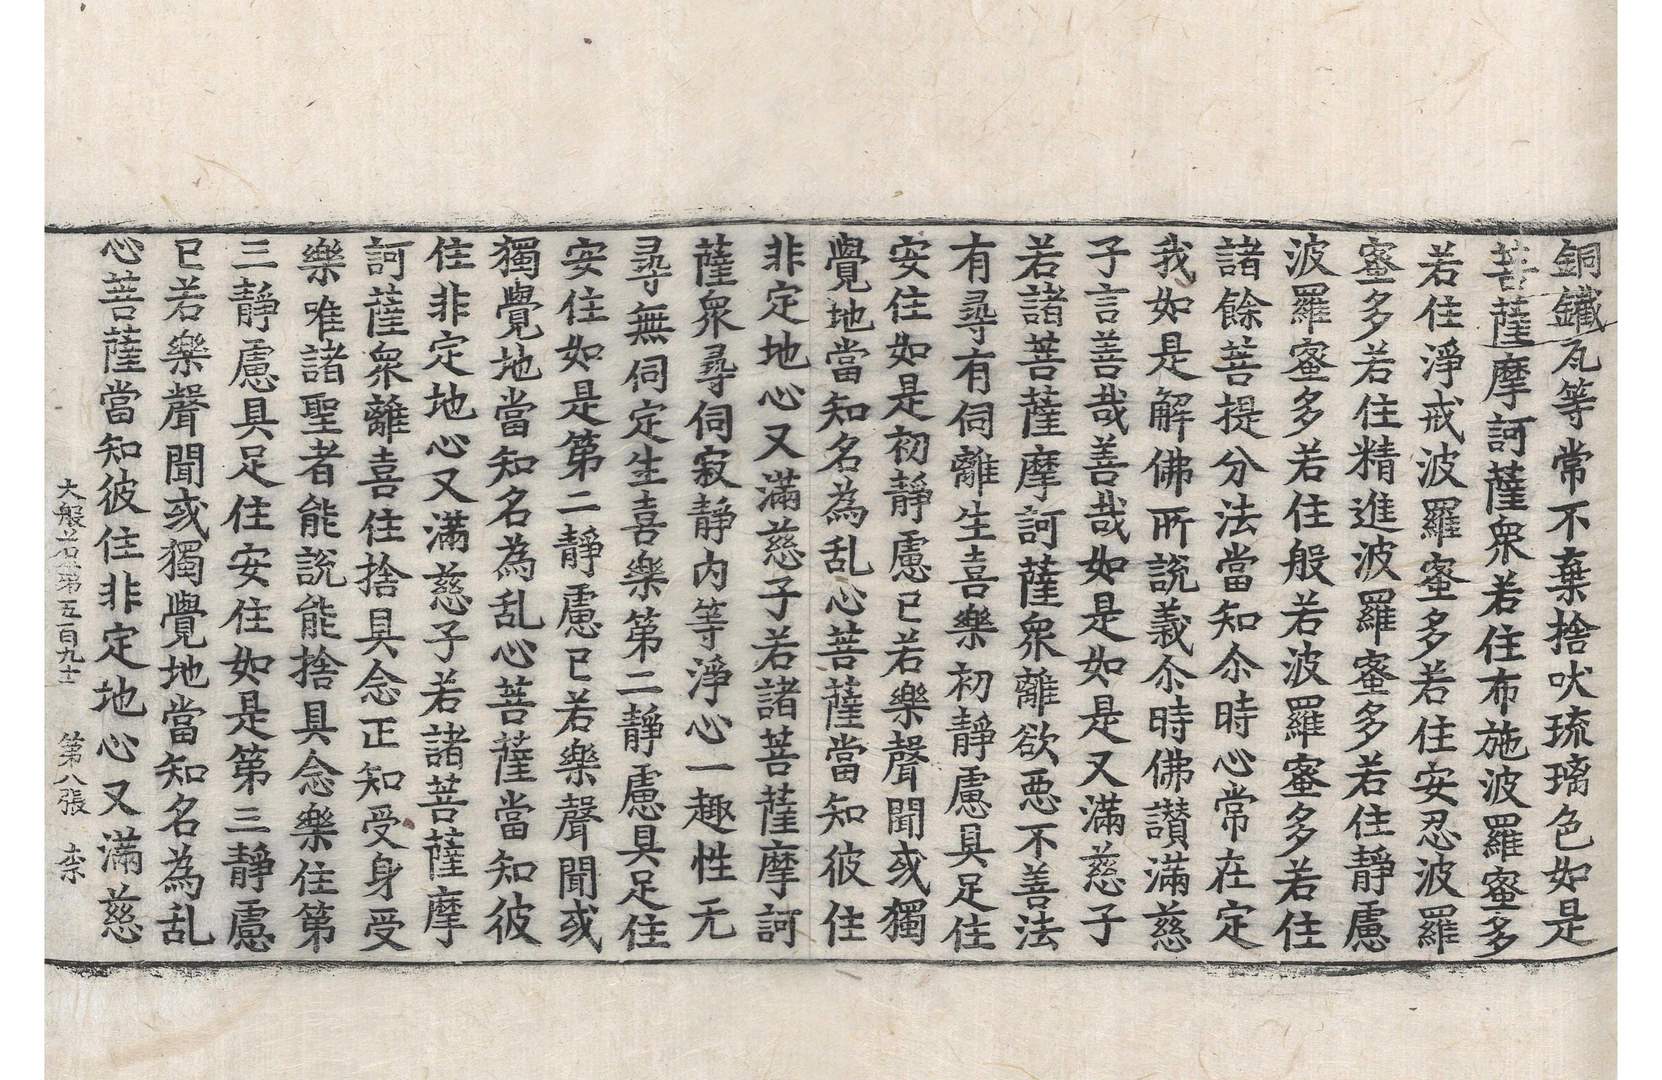 銅鐵瓦等常不棄捨吠琉璃色如是
菩薩摩訶薩衆若住布施波羅蜜多
若住淨戒波羅蜜多若住安忍波羅
蜜多若住精進波羅蜜多若住靜慮
波羅蜜多若住般若波羅蜜多若住
諸餘菩提分法當知尒時心常在定
我如是解佛所說義尒時佛讃滿慈
子言善哉善哉如是如是又滿慈子
若諸菩薩摩訶薩衆離欲惡不善法
有尋有伺離生喜樂初靜慮具足住
安住如是初靜慮已若樂聲聞或獨
覺地當知名為乱心菩薩當知彼住
非定地心又滿慈子若諸菩薩摩訶
薩衆尋伺寂靜內等淨心一趣性无
尋無伺定生喜樂第二靜慮具足住
安住如是第二靜慮已若樂聲聞或
獨覺地當知名為乱心菩薩當知彼
住非定地心又滿慈子若諸菩薩摩
訶薩衆離喜住捨具念正知受身受
樂唯諸聖者能說能捨具念樂住第
三靜慮具足住安住如是第三靜慮
已若樂聲聞或獨覺地當知名為乱
心菩薩當知彼住非定地心又滿慈
大般若第五百九十二 第八張 柰